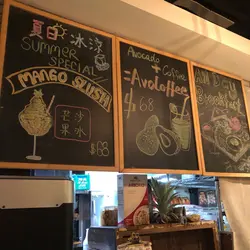 夏日冰涼
SUMMER
SPECIAL
MANGO SLUSH
芒沙
果冰
$68
Avocado
+ Coffee
=Avoloffee
$68
All Day
Breakfast